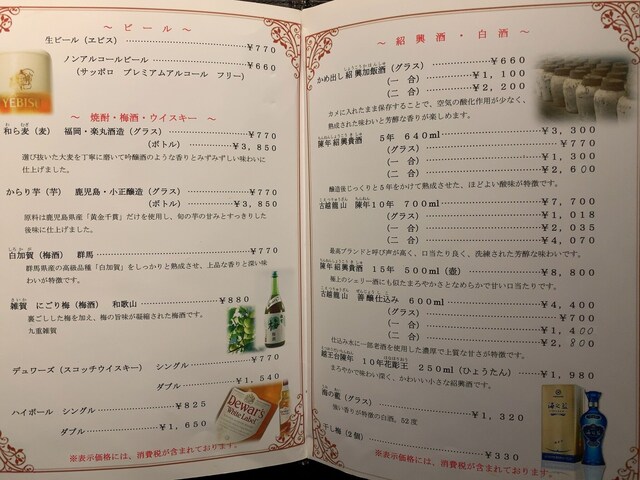 ～ ビール ～
生ビール（ヱビス） ¥770
ノンアルコールビール ¥660
（サッポロ プレミアムアルコール フリー）
YEBISU
～ 焼酎・梅酒・ウイスキー ～
和ら麦（麦） 福岡・楽丸酒造（グラス） ¥770
（ボトル） ¥3,850
選び抜いた大麦を丁寧に磨いて吟醸酒のような香りとみずみずしい味わいに
仕上げました。
からり芋（芋） 鹿児島・小正醸造（グラス） ¥770
（ボトル） ¥3,850
原料は鹿児島県産「黄金千貫」だけを使用、旬の芋の甘みとすっきりした
後味に仕上げました。
白加賀（梅酒） 群馬 ¥770
群馬県産の高級品種「白加賀」をしっかりと熟成させ、上品な香りと深い味
わいが特徴です。
雑賀 にごり梅（梅酒） 和歌山 ¥880
裏ごしした梅を加え、梅の旨味が凝縮された梅酒です。
九重雑賀
デュワーズ（スコッチウイスキー） シングル ¥770
ダブル ¥1,540
ハイボール シングル ¥825
ダブル ¥1,650
Dewar's
White Label
※表示価格には、消費税が含まれております。
～ 紹興酒・白酒 ～
かめ出し紹興加飯酒（グラス） ¥660
（一 合） ¥1,100
（二 合） ¥2,200
カメに入れたまま保存することで、空気の酸化作用が少なく、
熟成された味わいと芳醇な香りが楽しめます。
陳年紹興貴酒 5年 640ml ¥3,300
（グラス） ¥770
（一 合） ¥1,300
（二 合） ¥2,600
醸造後じっくりと5年をかけて熟成させた、ほどよい酸味が特徴です。
古越龍山 陳年10年 700ml ¥7,700
（グラス） ¥1,018
（一 合） ¥2,035
（二 合） ¥4,070
最高ブランドと呼び声が高く、口当たり良く、洗練された芳醇な味わいです。
陳年紹興貴酒 15年 500ml（壺） ¥8,800
極上のシェリー酒にも似たまろやかさとなめらかで甘い口当たりです。
古越龍山 善醸仕込み 600ml ¥4,400
（グラス） ¥700
（一 合） ¥1,400
（二 合） ¥2,800
仕込み水に一部老酒を使用した濃厚で上質な甘さが特徴です。
越王台陳年 10年花彫王 250ml（ひょうたん） ¥1,980
まろやかで味わい深く、かわいい小さな紹興酒です。
海の藍（グラス） ¥1,320
強い香りが特徴の白酒。52度
干し梅（2個） ¥330
※表示価格には、消費税が含まれております。